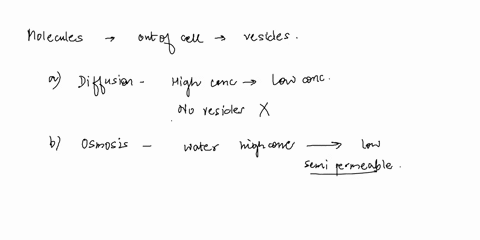 Molecules → out of cell → vesicles.
a) Diffusion - High conc → Low conc.
No vesicles X
b) Osmosis - water high conc → low
semi permeable.